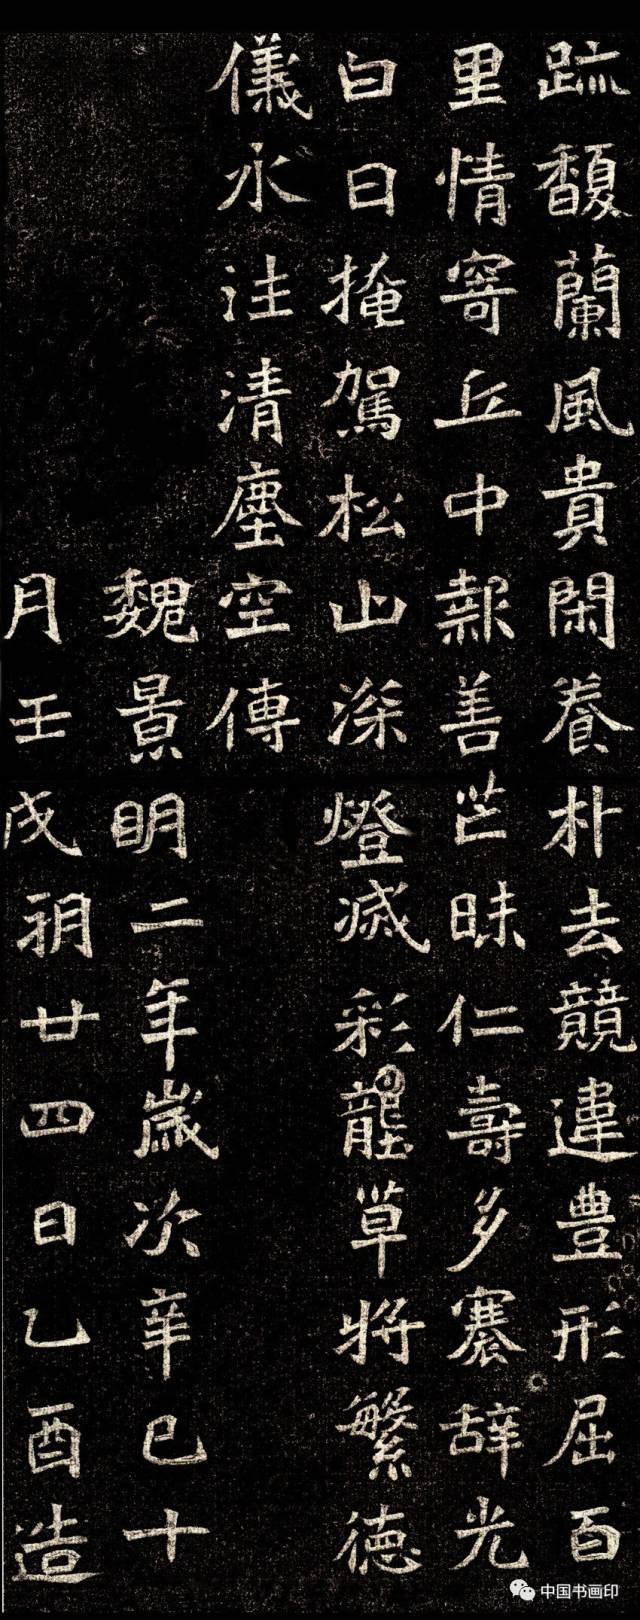 疏馥蘭風貴閑養朴去競違豊形屈百
里情寄丘中報善芒昧仁壽多褰辞光
白日掩駕松山深燈滅彩壟草將繁德
儀永注清塵空傳
魏景明二年歲次辛巳十
月壬戌朔廿四日乙酉造
中国书画印